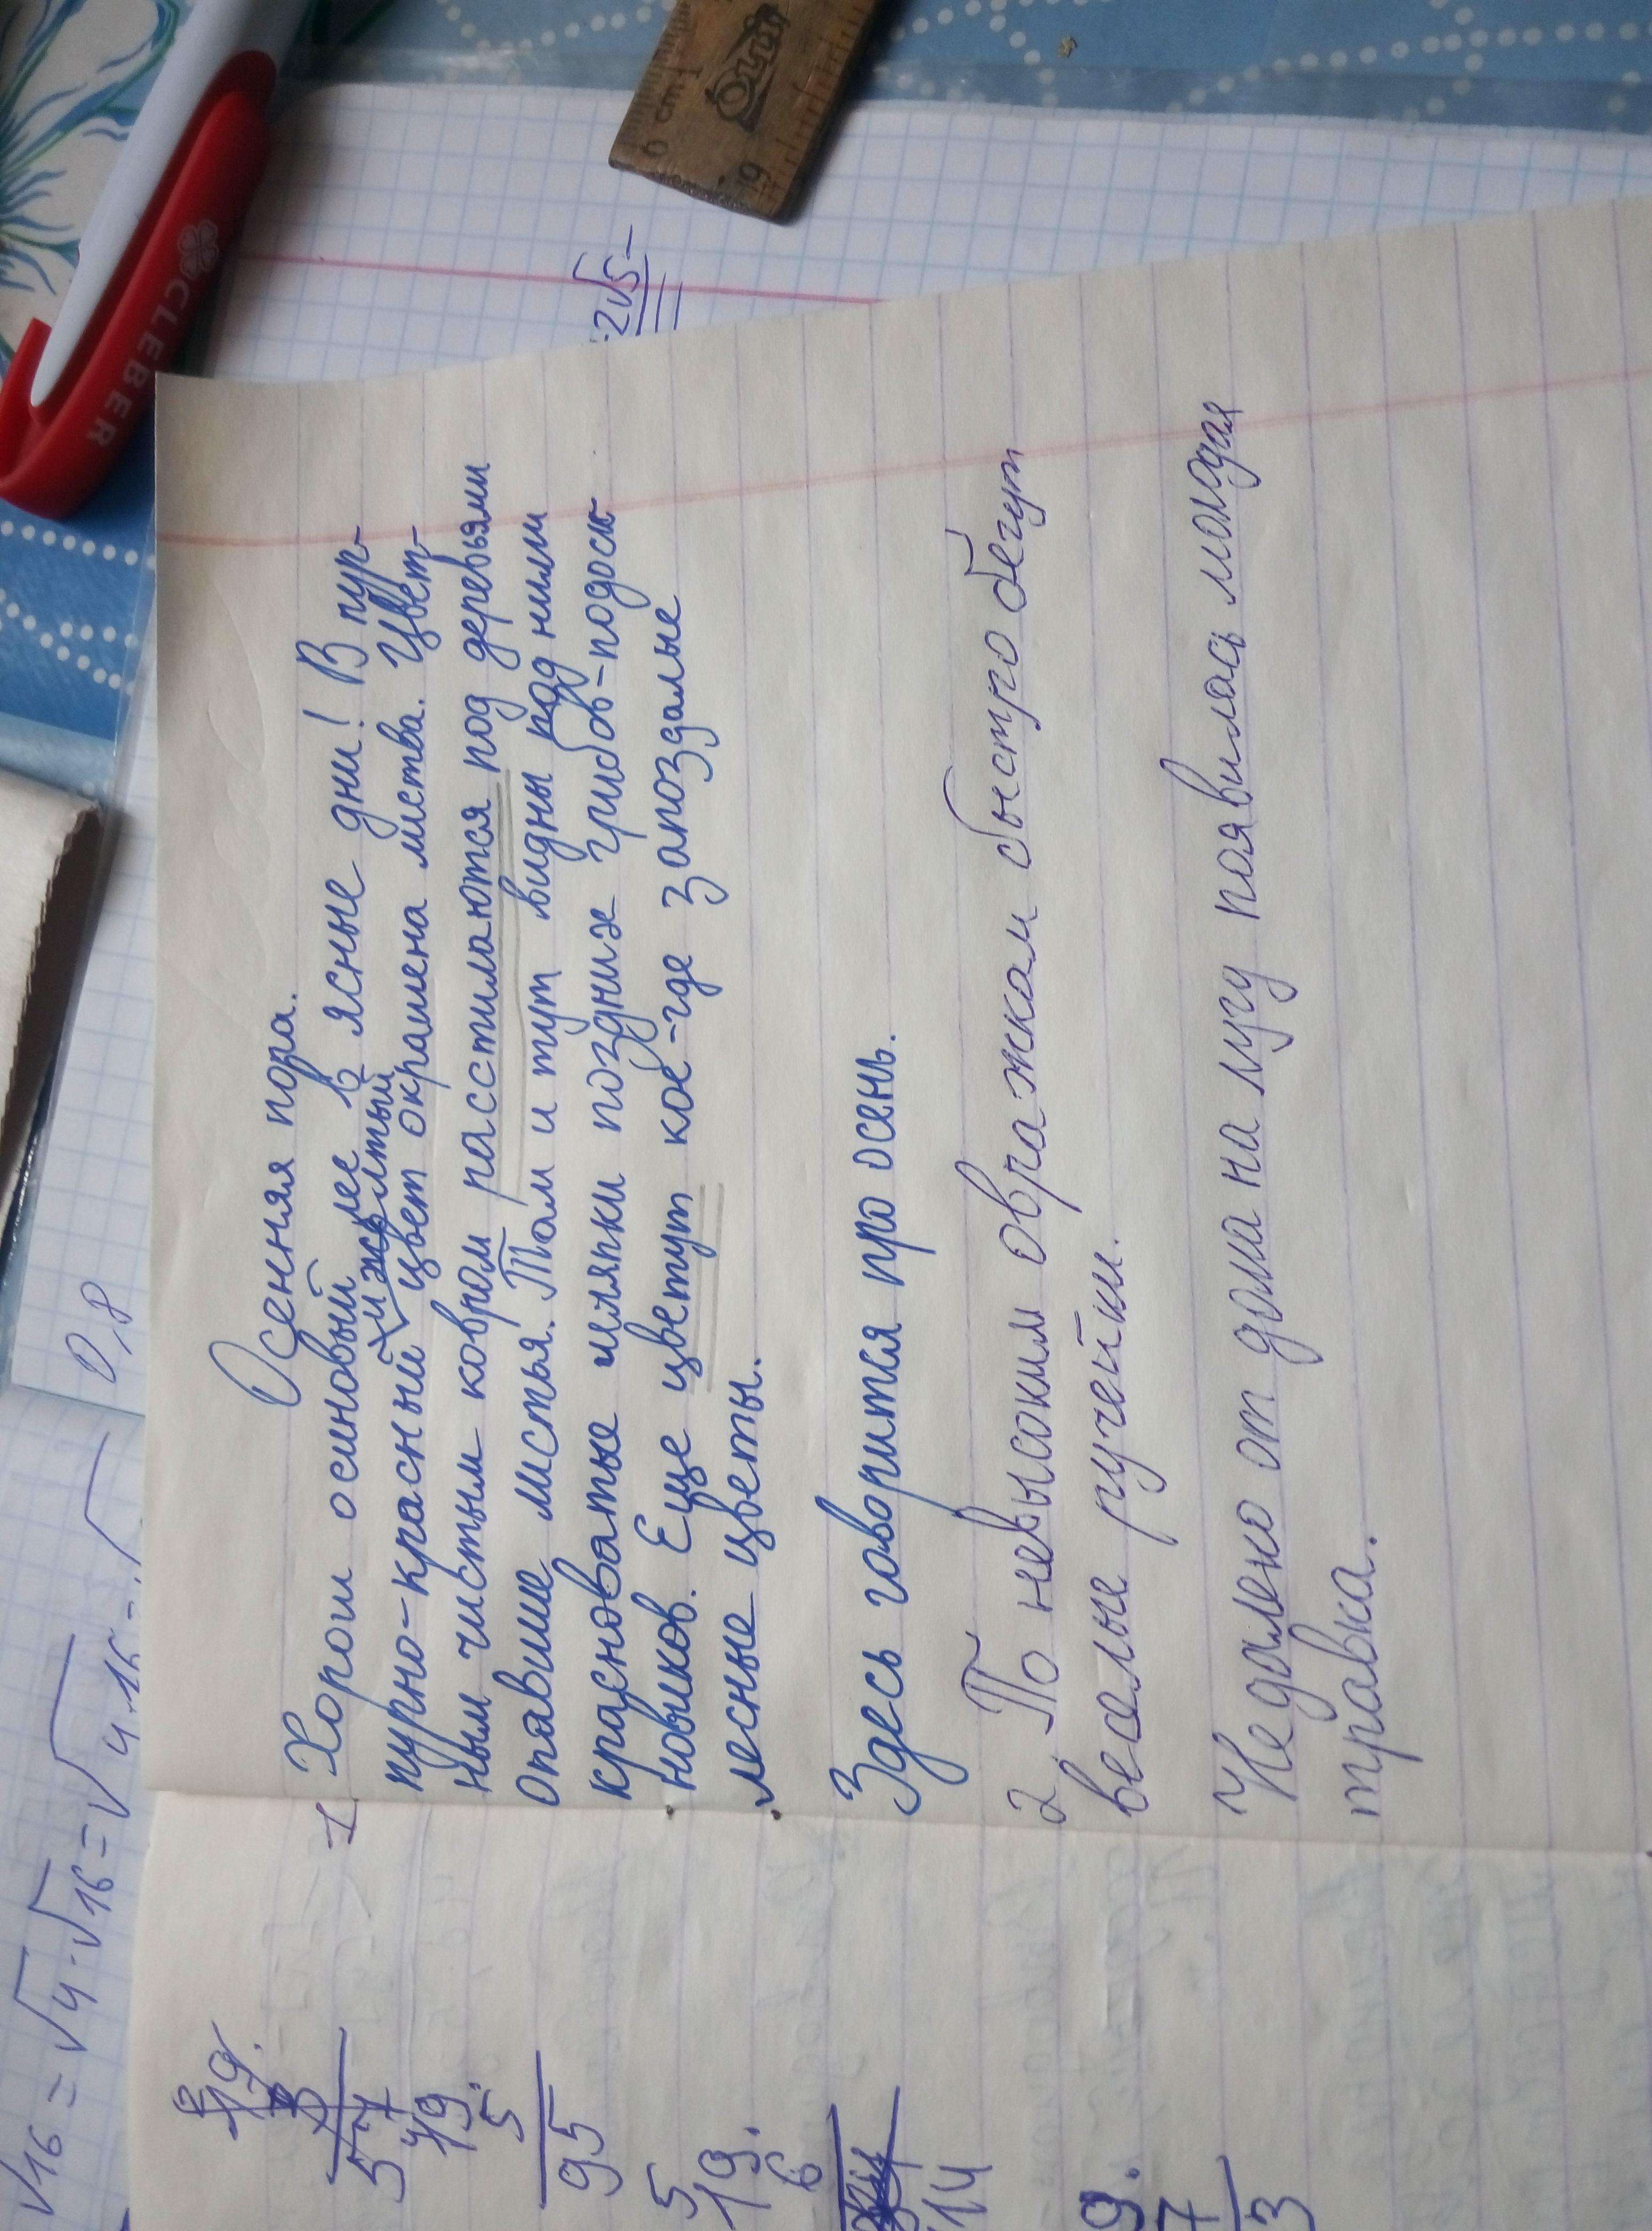 Осенняя пора.
1. Хорош осиновый лес в ясные дни! В пур-
и жёлтый
пурно-красный цвет окрашена листва. Цвет-
ным чистым ковром расстилаются под деревьями
опавшие листья. Там и тут видны под ними
красноватые шляпки поздних грибов-подоси-
новиков. Еще цветут кое-где запоздалые
лесные цветы.
Здесь говорится про осень.
2. По невысоким овражкам быстро бегут
веселые ручейки.
Недалеко от дома на лугу появилась молодая
травка.
√16 = √4·√16 = √4·16 =
0,8
2√5
19.
57
19.
5
95
5
19.
6
114
9.
7
3
CLEBER
0 cm 1
9